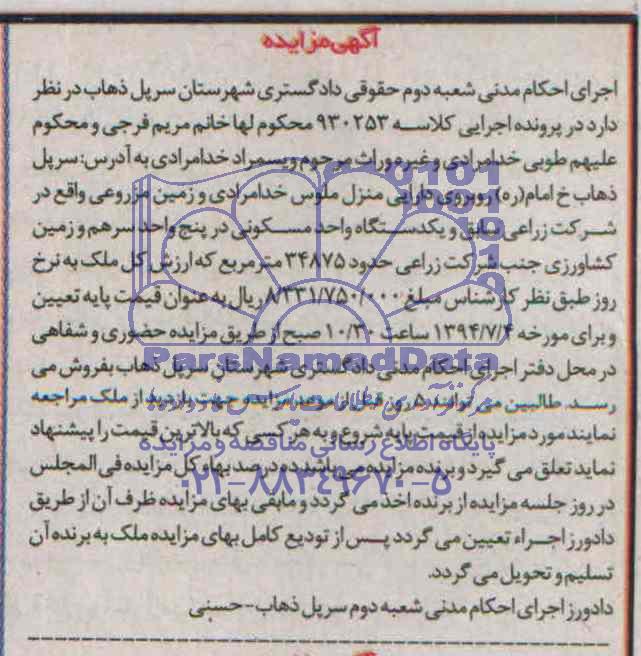 آگهی مزایده
اجرای احکام مدنی شعبه دوم حقوقی دادگستری شهرستان سرپل ذهاب در نظر
دارد در پرونده اجرایی کلاسه ۹۳۰۲۵۳ محکوم لها خانم مریم فرجی و محکوم
علیهم طوبی خدامرادی و غیره وراث مرحوم ویسمراد خدامرادی به آدرس: سرپل
ذهاب خ امام(ره) روبروی دارایی منزل ملوس خدامرادی و زمین مزروعی واقع در
شرکت زراعی سابق و یکدستگاه واحد مسکونی در پنج واحد سرهم و زمین
کشاورزی جنب شرکت زراعی حدود ۳۴۸۷۵ مترمربع که ارزش کل ملک به نرخ
روز طبق نظر کارشناس مبلغ ۸/۳۳۱/۷۵۰/۰۰۰ ریال به عنوان قیمت پایه تعیین
و برای مورخه ۱۳۹۴/۷/۴ ساعت ۱۰/۳۰ صبح از طریق مزایده حضوری و شفاهی
در محل دفتر اجرای احکام مدنی دادگستری شهرستان سرپل ذهاب بفروش می
رسد. طالبین می توانند ۵ روز قبل از موعد مزایده جهت بازدید از ملک مراجعه
نمایند مورد مزایده از قیمت پایه شروع و به هر کسی که بالاترین قیمت را پیشنهاد
نماید تعلق می گیرد و برنده مزایده می باشد ده درصد بهاء کل مزایده فی المجلس
در روز جلسه مزایده از برنده اخذ می گردد و مابقی بهای مزایده ظرف آن از طریق
دادورز اجراء تعیین می گردد پس از تودیع کامل بهای مزایده ملک به برنده آن
تسلیم و تحویل می گردد.
دادورز اجرای احکام مدنی شعبه دوم سرپل ذهاب-حسنی
ParsNamadData
پایگاه اطلاع رسانی مناقصه و مزایده
۰۲۱-۸۸۳۴۹۶۷۰-۵